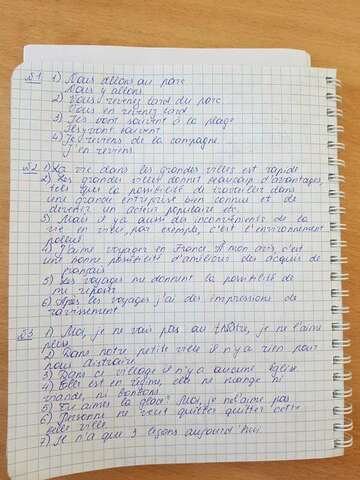 §1 1) Nous allons au parc
Nous y allons
2) Vous revenez tard du parc
Vous en revenez tard
3) Ils vont souvent à la plage
Ils y vont souvent
4) Je reviens de la campagne
J'en reviens
§2 1) La vie dans les grandes villes est rapide
2) Les grandes villes donnent beaucoup d'avantages,
tels que la possibilité de travailler dans
une grande entreprise bien connue et de
devenir un acteur populaire etc.
3) Mais il y a aussi des inconvénients de la
vie en ville, par exemple, c'est l'environnement
pollué
4) J'aime voyager en France. A mon avis, c'est
une bonne possibilité d'améliorer des acquis de
français
5) Les voyages me donnent la possibilité de
me reposer
6) Après les voyages j'ai des impressions de
ravissement
§3 1) Moi, je ne vais pas au théâtre, je ne l'aime
plus.
2) Dans notre petite ville il n'y a rien pour
nous distraire
3) Dans ce village il n'y a aucune église
4) Elle est en régime, elle ne mange ni
viande, ni bonbons
5) Tu aimes la glace? Moi, je ne l'aime pas
6) Personne ne veut quitter quitter cette
belle ville
7) Je n'a que 3 leçons aujourd'hui